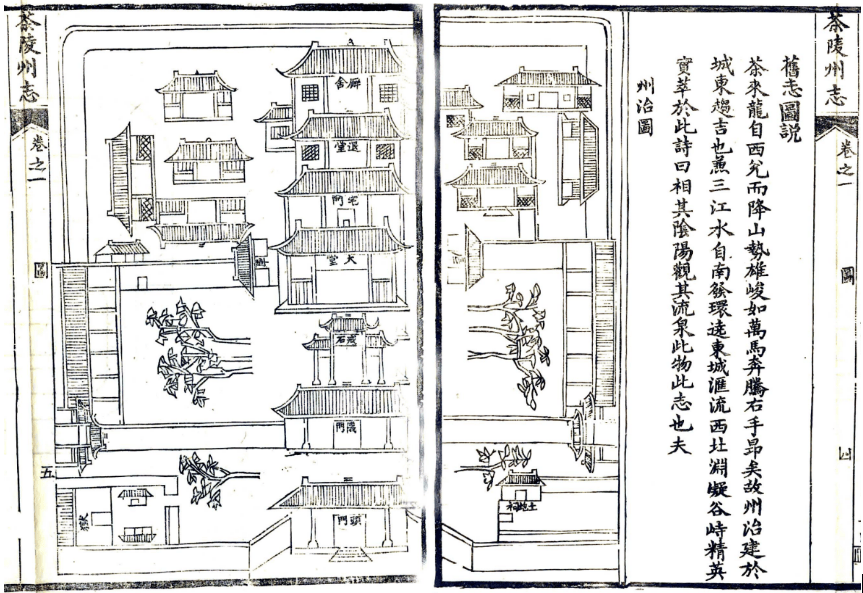 茶陵州志
卷之一
圖
四
舊志圖說
茶來龍自西兊而降山勢雄峻如萬馬奔騰右手昻矣故州治建於
城東趨吉也蕉三江水自南發環遶東城滙流西北淵凝谷峙精英
實萃於此詩曰相其陰陽觀其流泉此物此志也夫
州治圖
土地祠
廨舍
退堂
宅門
大堂
戒石
儀門
頭門
獄
茶陵州志
卷之一
圖
五